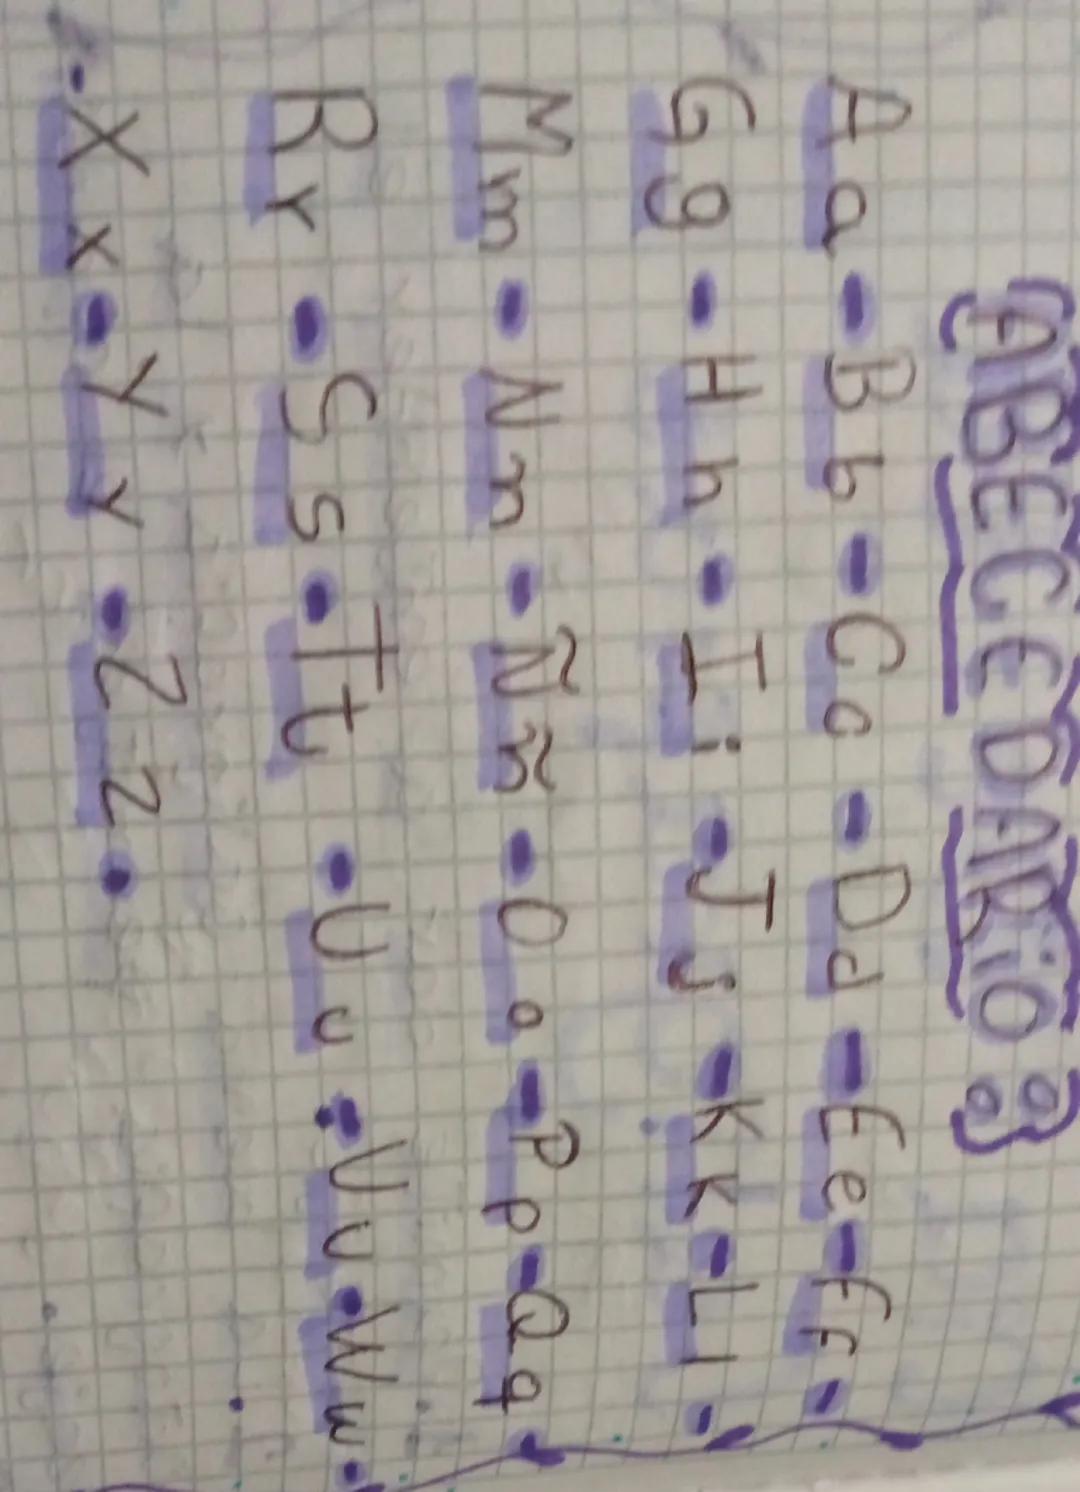 ABECEDARiO
Aa - Bb - Cc - Dd - Ee - Ff -
Gg - Hh - Ii - Jj - Kk - Ll -
Mm - Nn - Ññ - Oo - Pp - Qq -
Rr - Ss - Tt - Uu - Vv - Ww -
- Xx - Yy - Zz .